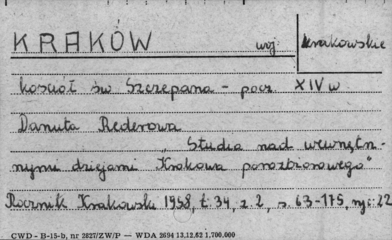 KRAKÓW woj. krakowskie
kościół św Szczepana - pocz. XIV w
Danuta Rederowa
"Studia nad wewnętrz-
nymi dziejami Krakowa porozbiorowego"
Rocznik Krakowski 1958, t. 34, z. 2, s. 63-175, ryc. 22
CWD - B-15-b, nr 2827/ZW/P — WDA 2694 13.12.62 1.700.000